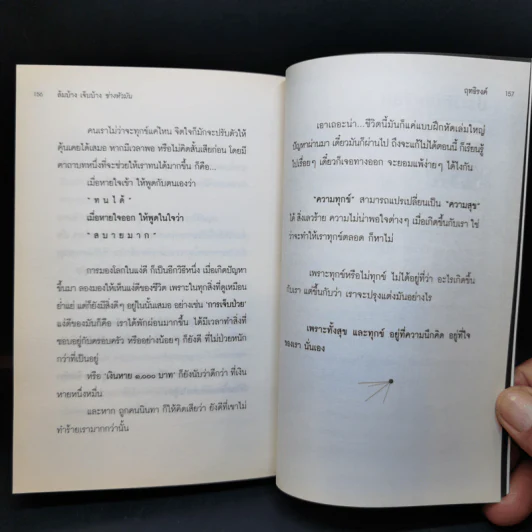 156 ล้มบ้าง เจ็บบ้าง ช่างหัวมัน
คนเราไม่ว่าจะทุกข์แค่ไหน จิตใจก็มักจะปรับตัวให้
คุ้นเคยได้เสมอ หากมีเวลาพอ หรือไม่คิดสั้นเสียก่อน โดยมี
คาถาบทหนึ่งที่จะช่วยให้เราทนได้มากขึ้น ก็คือ...
เมื่อหายใจเข้า ให้พูดกับตนเองว่า
"ทนได้"
เมื่อหายใจออก ให้พูดในใจว่า
"สบายมาก"
การมองโลกในแง่ดี ก็เป็นอีกวิธีหนึ่ง เมื่อเกิดปัญหา
ขึ้นมา ลองมองให้เห็นแง่ดีของชีวิต เพราะในทุกสิ่งที่ดูเหมือน
ย่ำแย่ แต่ก็ยังมีสิ่งดีๆ อยู่ในนั้นเสมอ อย่างเช่น 'การเจ็บป่วย'
แง่ดีของมันก็คือ เราได้พักผ่อนมากขึ้น ได้มีเวลาทำสิ่งที่
ชอบอยู่กับครอบครัว หรืออย่างน้อยๆ ก็ยังดี ที่ไม่ป่วยหนัก
กว่าที่เป็นอยู่
หรือ 'เงินหาย ๑,๐๐๐ บาท' ก็ยังนับว่าดีกว่า ที่เงิน
หายหนึ่งหมื่น
และหาก ถูกคนนินทา ก็ให้คิดเสียว่า ยังดีที่เขาไม่
ทำร้ายเรามากกว่านั้น
ฤทธิรงค์ 157
เอาเถอะน่า...ชีวิตนี้มันก็แค่แบบฝึกหัดเล่มใหญ่
ปัญหาผ่านมา เดี๋ยวมันก็ผ่านไป ถึงจะแก้ไม่ได้ตอนนี้ ก็เรียนรู้
ไปเรื่อยๆ เดี๋ยวก็เจอทางออก จะยอมแพ้ง่ายๆ ได้ไงกัน
"ความทุกข์" สามารถแปรเปลี่ยนเป็น "ความสุข"
ได้ สิ่งเลวร้าย ความไม่น่าพอใจต่างๆ เมื่อเกิดขึ้นกับเรา ใช่
ว่าจะทำให้เราทุกข์ตลอด ก็หาไม่
เพราะทุกข์หรือไม่ทุกข์ ไม่ได้อยู่ที่ว่า อะไรเกิดขึ้น
กับเรา แต่ขึ้นกับว่า เราจะปรุงแต่งมันอย่างไร
เพราะทั้งสุข และทุกข์ อยู่ที่ความนึกคิด อยู่ที่ใจ
ของเรา นั่นเอง